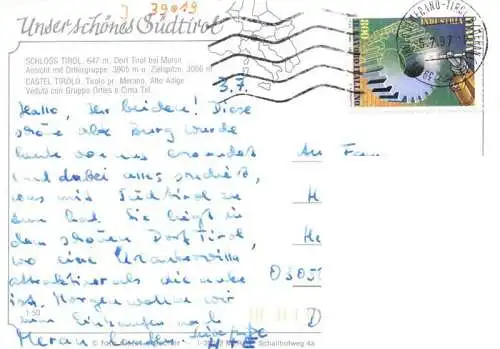 J 39019
Unser schönes Südtirol
SCHLOSS TIROL, 647 m, Dorf Tirol bei Meran
Ansicht mit Ortlergruppe, 3905 m u. Zielspitze, 3006 m
CASTEL TIROLO, Tirolo pr. Merano, Alto Adige
Veduta con Gruppo Ortles e Cima Tel
ITALIA
INDUSTRIA
800
3.7.
Hallo, Ihr beiden! Diese
schöne alte Burg wurde
heute von uns erwandert
und dabei alles studiert,
was mit Südtirol zu
tun hat. Sie liegt in
dem schönen Dorf Tirol,
wo eine Urlaubervilla
attraktiver als die andere
ist. Morgen wollen wir
zum Einkaufen nach
Meran laufen. Liebe
H E
An Fam
H
He
D
1-50
Schallhofweg 4a